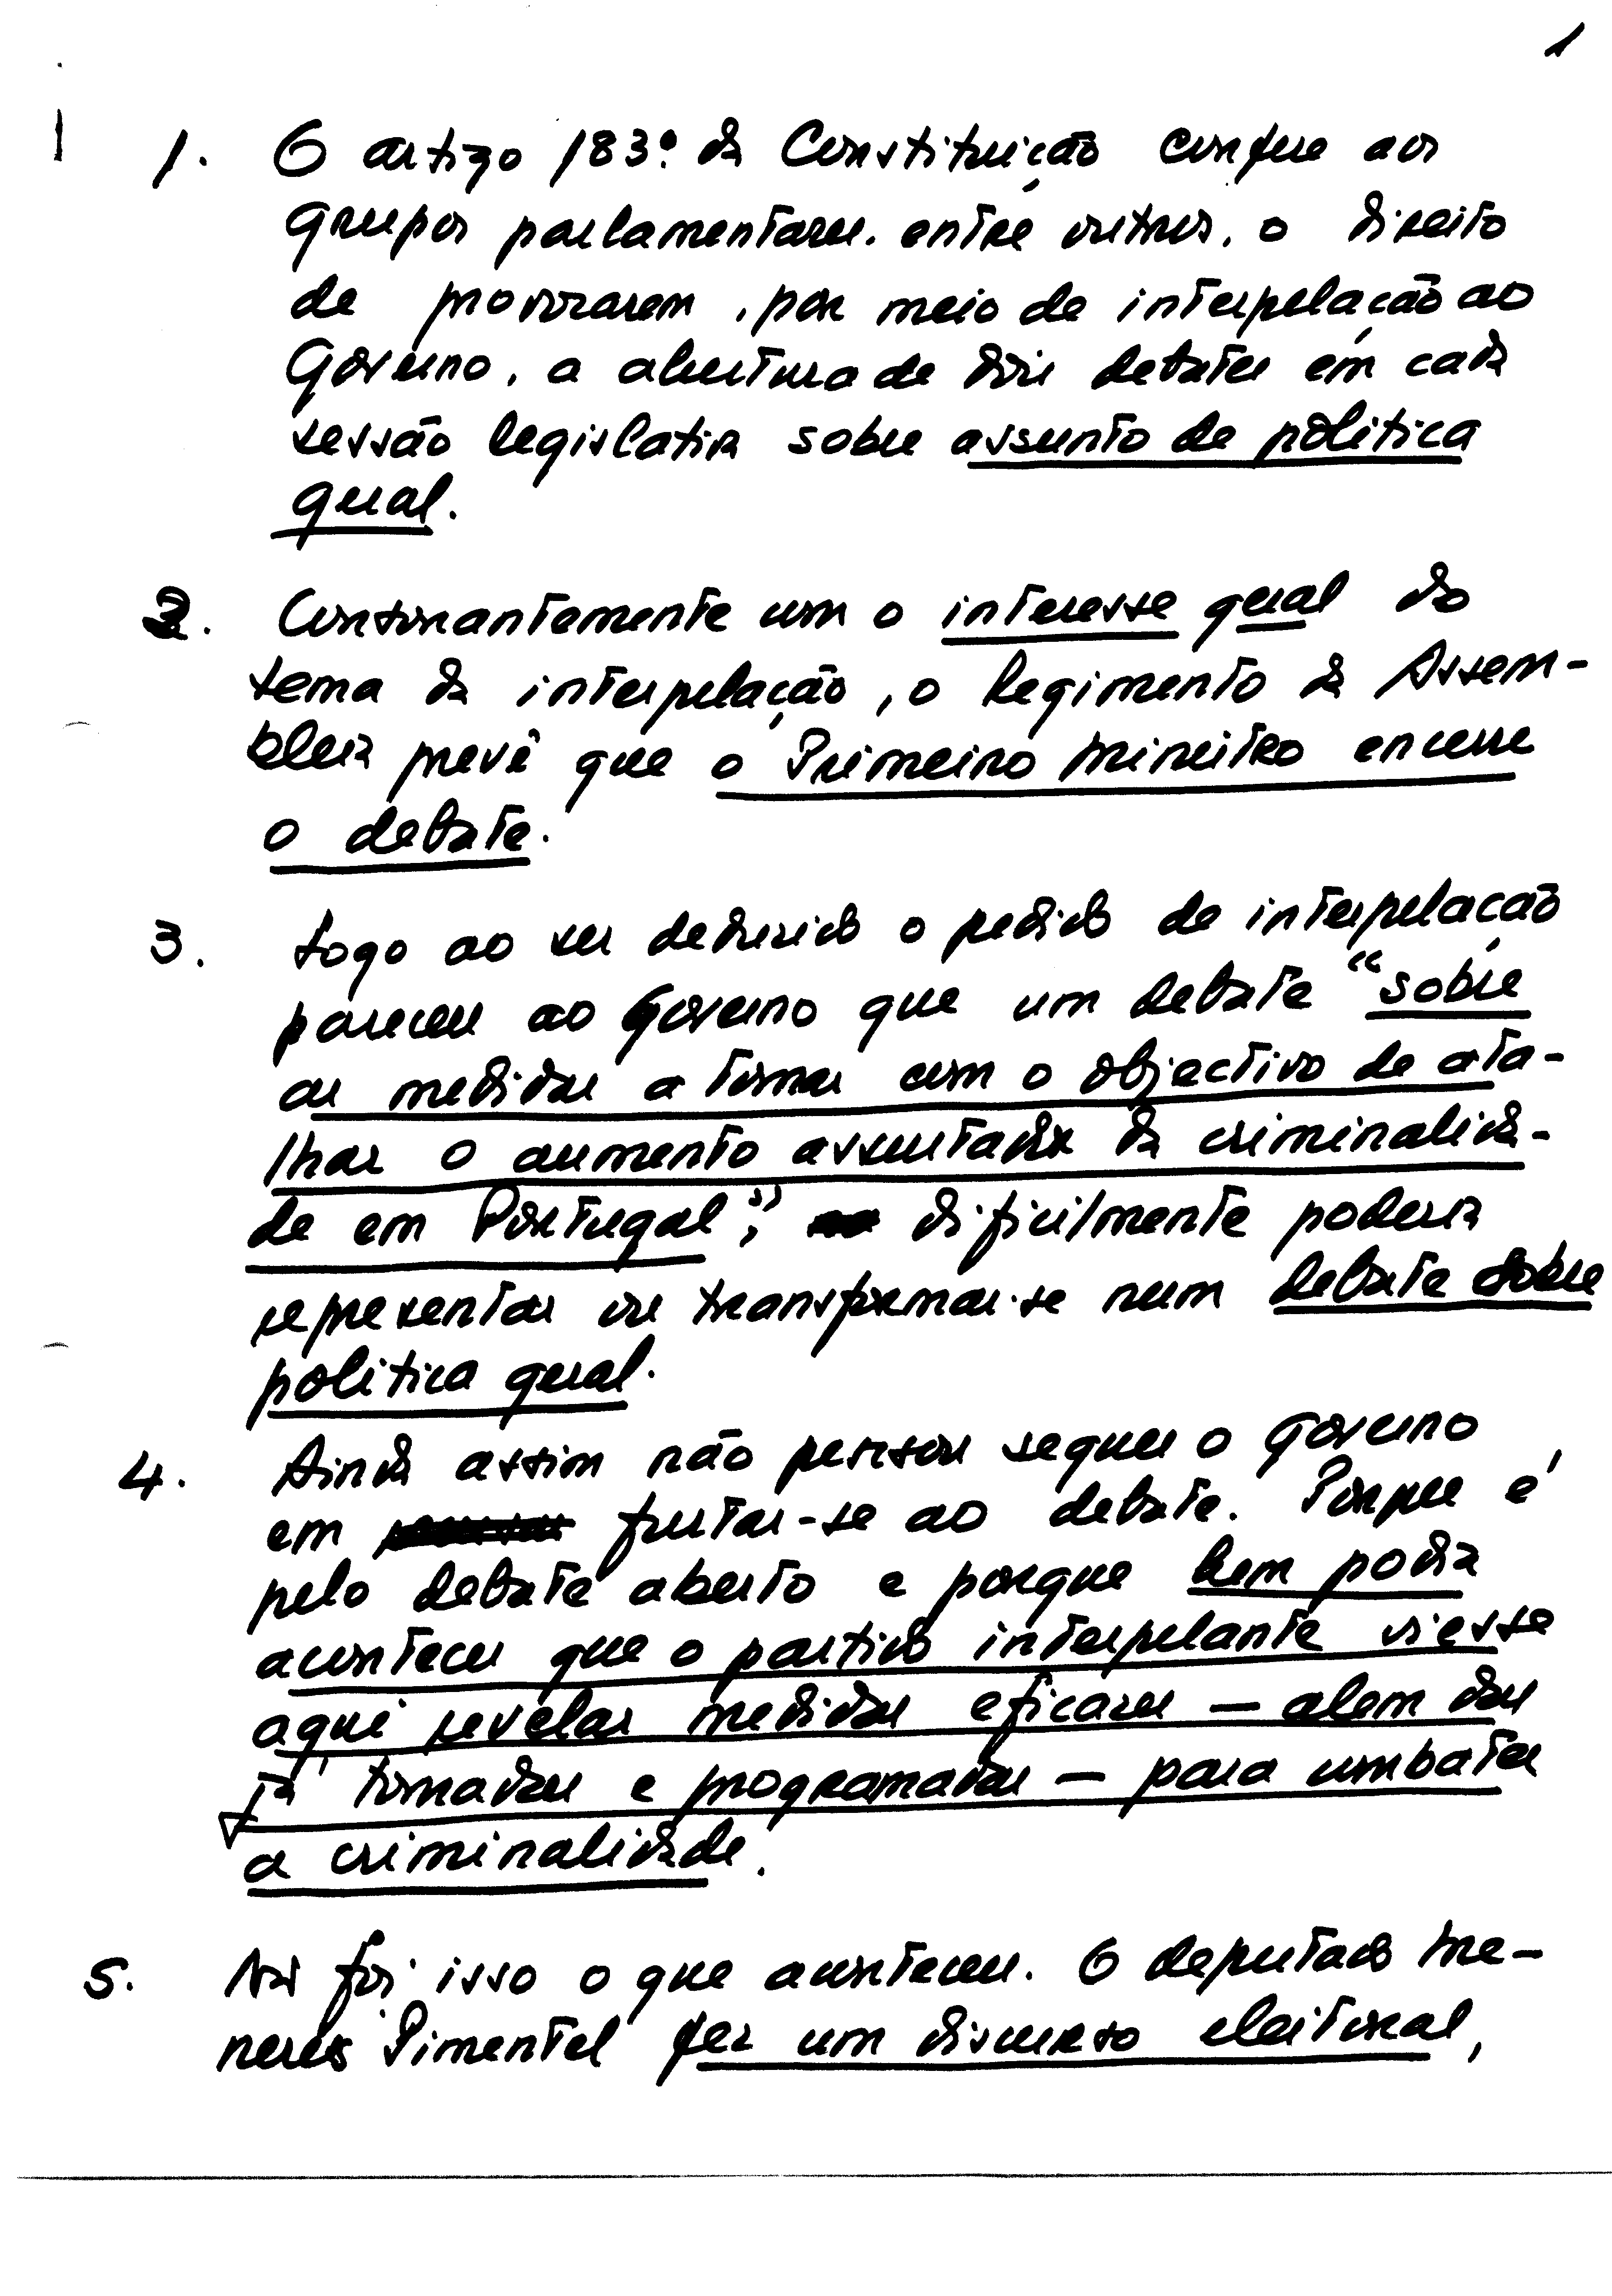 1
1. O artigo 183º da Constituição confere aos
grupos parlamentares. entre outros. o direito
de provocarem, por meio de interpelação ao
Governo, a abertura de dois debates em cada
sessão legislativa sobre assunto de política
geral.
2. Consonantemente com o interesse geral do
tema da interpelação, o Regimento da Assem-
bleia prevê que o Primeiro Ministro encerre
o debate.
3. Logo ao ser deduzido o pedido de interpelação
pareceu ao Governo que um debate "sobre
as medidas a tomar com o objectivo de ata-
lhar o aumento assustador da criminalida-
de em Portugal", dificilmente poderia
representar ou transformar-se num debate sobre
política geral.
4. Ainda assim não pensou sequer o Governo
em furtar-se ao debate. Porque é
pelo debate aberto e porque bem podia
acontecer que o partido interpelante viesse
aqui revelar medidas eficazes — alem das
já tomadas e programadas — para combater
a criminalidade.
5. Não foi isso o que aconteceu. O deputado Me-
neres Pimentel fez um discurso eleitoral,